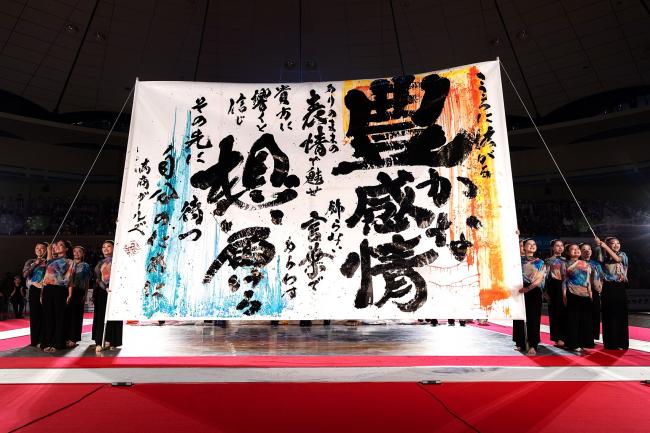 こころに拡がる
豊かな
感情
ありのままの
表情で魅せ
飾らない
言葉で
あらわす
貴方に
響くと
信じ
想い
その先に
待つ
自分の